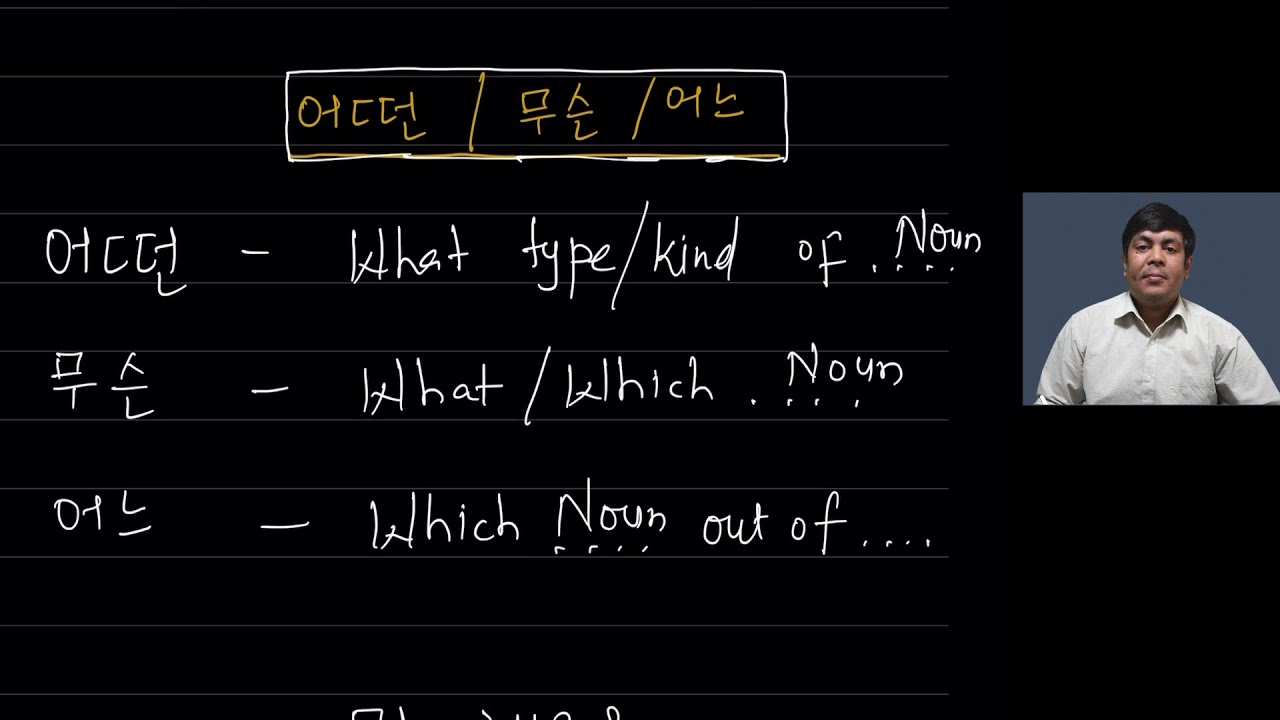 어떤 / 무슨 / 어느
어떤 - What type/kind of .... Noun
무슨 - What/Which .... Noun
어느 - Which Noun out of ....